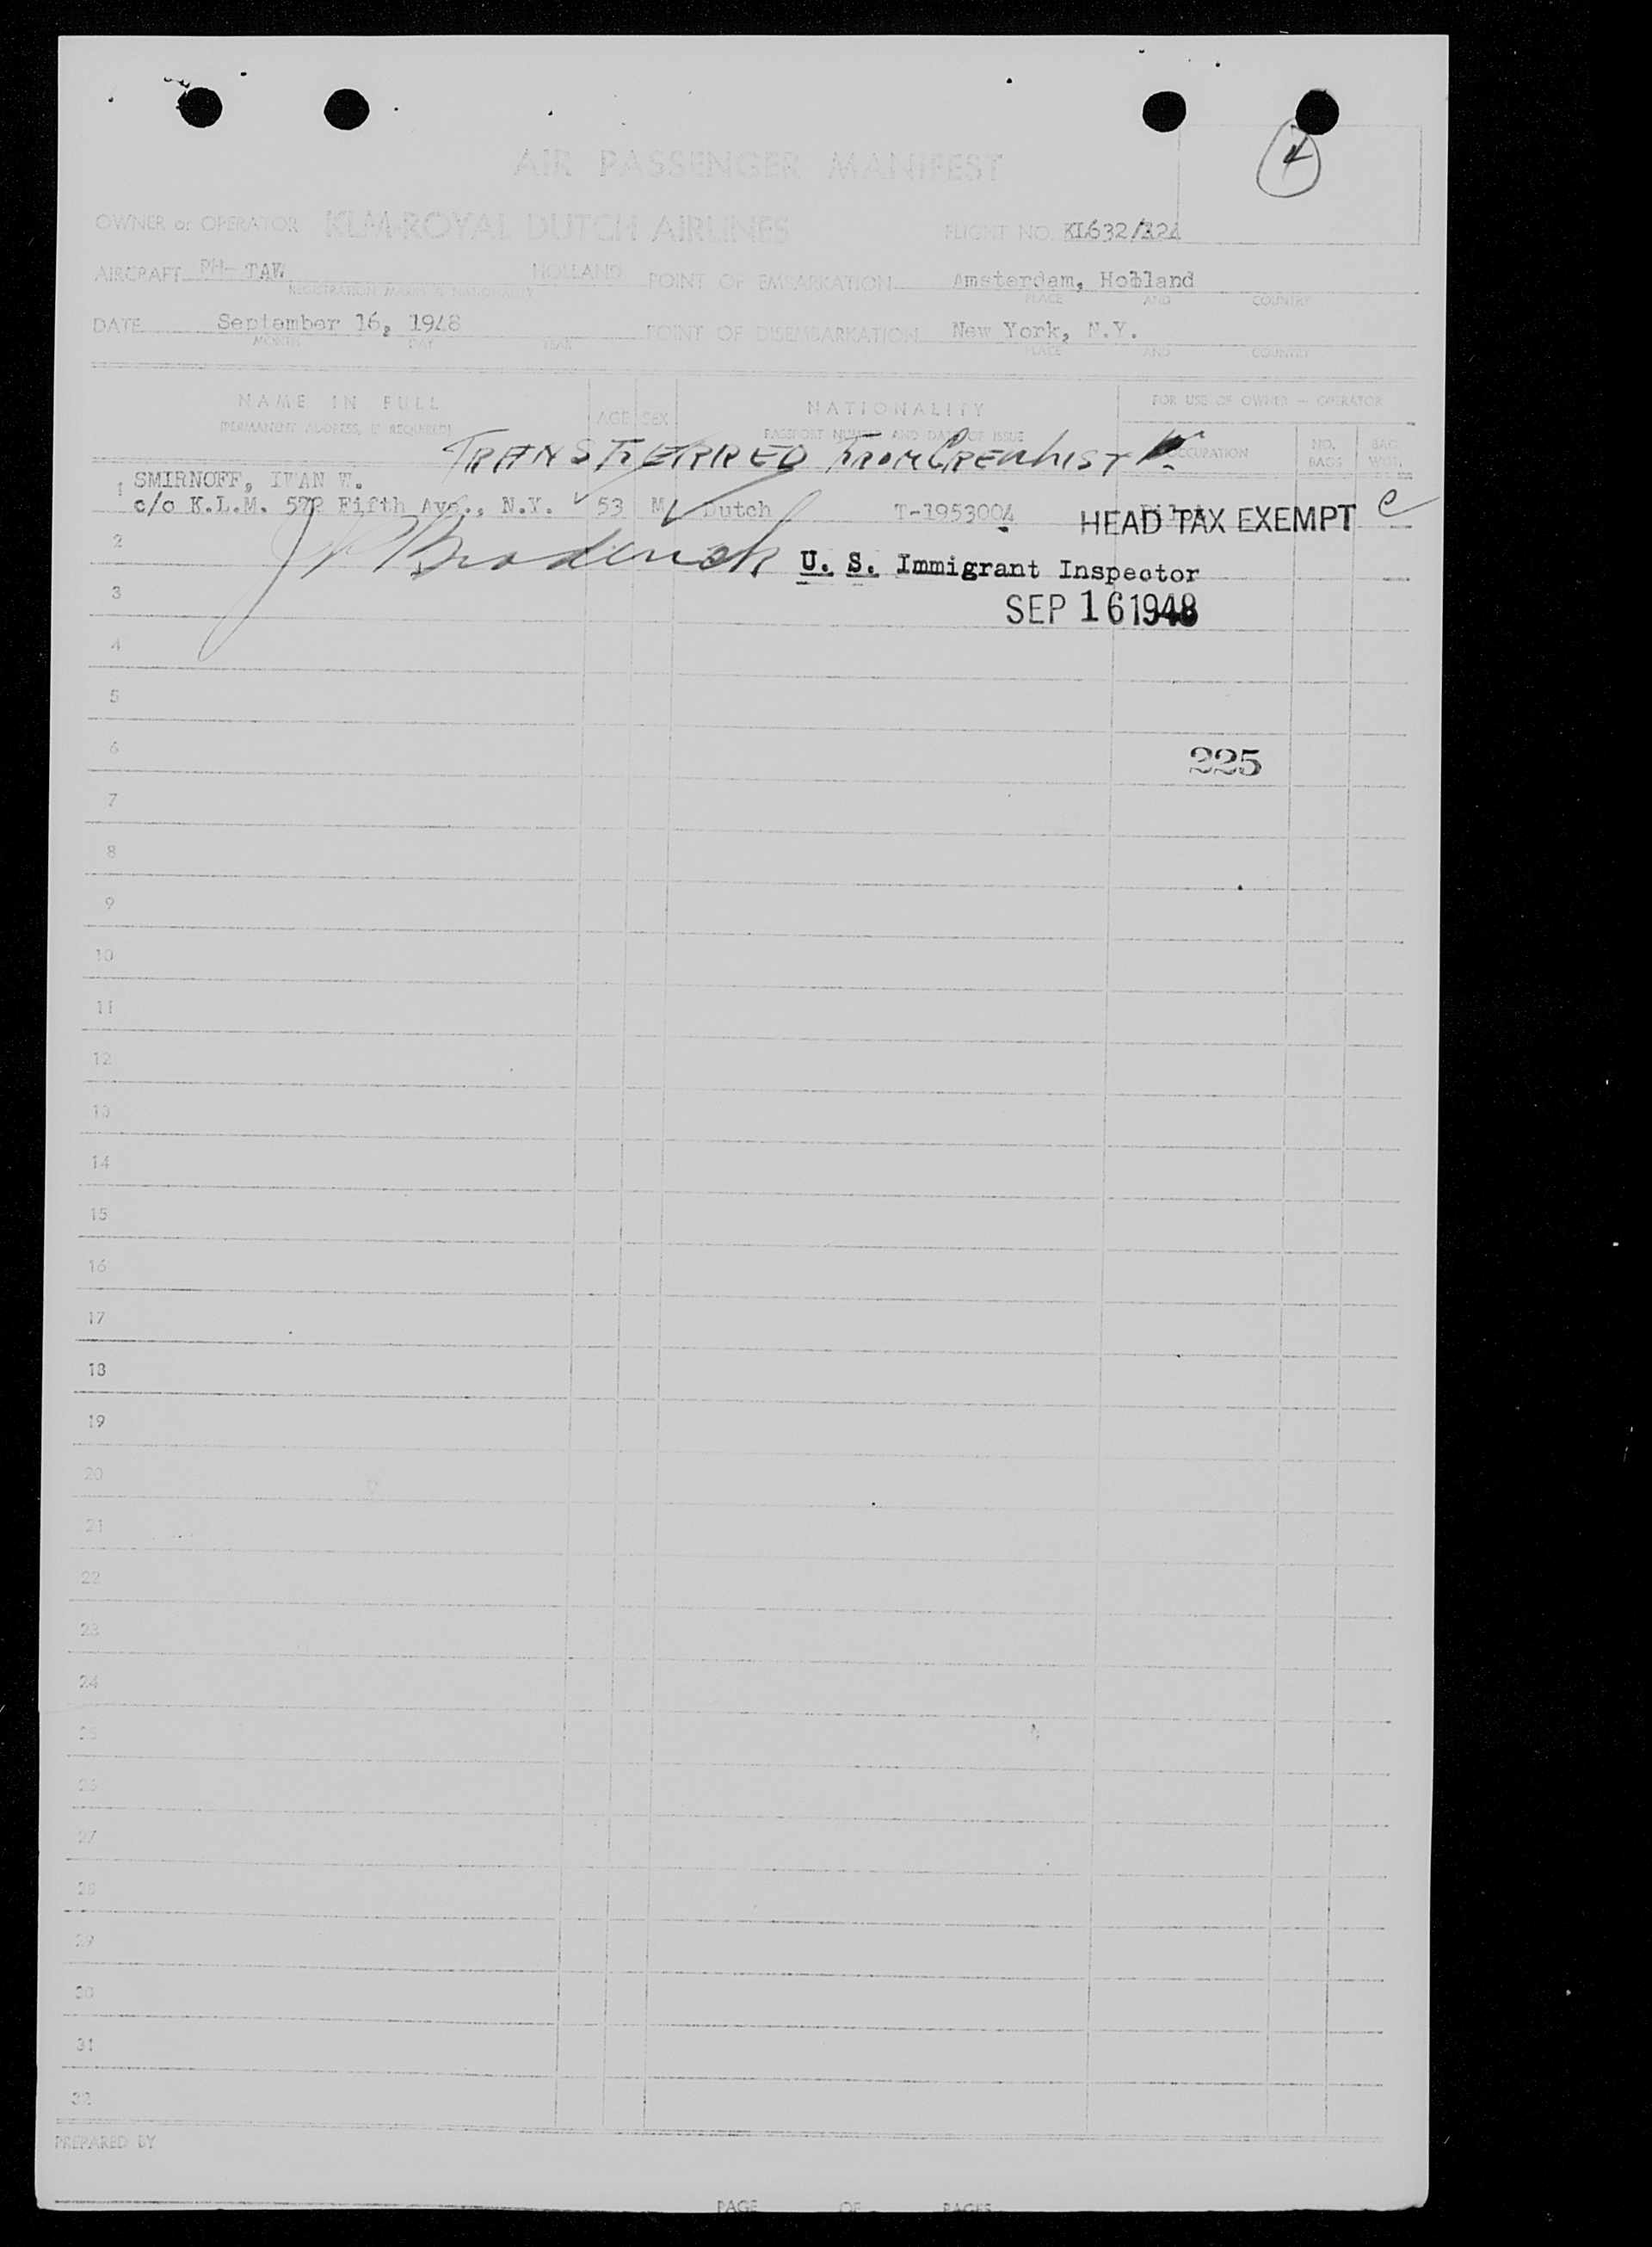 4
AIR PASSENGER MANIFEST
OWNER or OPERATOR KLM-ROYAL DUTCH AIRLINES FLIGHT NO. KL632/
AIRCRAFT PH- TAW HOLLAND POINT OF EMBARKATION Amsterdam, Holland
REGISTRATION MARKS & NATIONALITY PLACE AND COUNTRY
DATE September 16, 1948 POINT OF DISEMBARKATION New York, N.Y.
MONTH DAY YEAR PLACE AND COUNTRY
NAME IN FULL AGE SEX NATIONALITY FOR USE OF OWNER - OPERATOR
(PERMANENT ADDRESS, IF REQUIRED) PASSPORT NUMBER AND DATE OF ISSUE OCCUPATION NO. BAGS BAG. WGT.
TRANSFERRED FROM CREW LIST
1 SMIRNOFF, IVAN W.
c/o K.L.M. 572 Fifth Ave., N.Y. 53 M Dutch T-1953004 Pilot HEAD TAX EXEMPT C
2 Broderick U. S. Immigrant Inspector
3 SEP 16 1948
4
5
6 225
7
8
9
10
11
12
13
14
15
16
17
18
19
20
21
22
23
24
25
26
27
28
29
30
31
32
PREPARED BY
PAGE OF PAGES